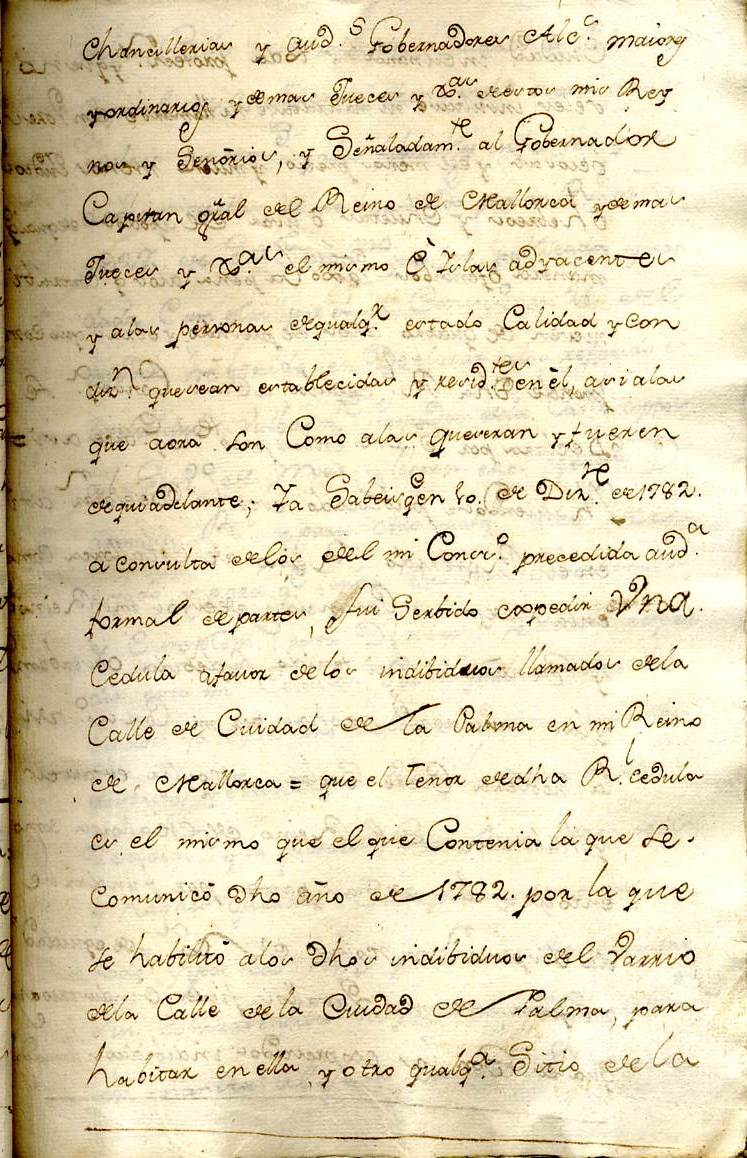 Chancillerias y Aud.s Gobernadores Alc.s maiores
y ordinarios y demas Jueces y de estos mis Rey
nos y Señorios, y Señaladam.te al Gobernador
Capitan gral del Reino de Mallorca y demas
Jueces y del mismo è Yslas adyacentes
y alas personas de qualq.r estado Calidad y Con
diz.n que sean establecidas y resid.tes en èl, asi alas
que aora son Como alas que seran y fueren
de qui adelante; Ya Sabeis q en 10. de Diz.re de 1782.
a consulta de los del mi Conss.o precedida aud.a
formal de partes, fui Serbido expedir Vna.
Cedula afavor delos indibiduos llamados dela
Calle de Ciudad de la Palma en mi Reino
de Mallorca = que el tenor de dha R.l cedula
es el mismo que el que Contenia la que se
Comunicó dho año de 1782. por la que
se habilitó alos dhos indibiduos del Varrio
dela Calle de la Ciudad de Palma, para
habitar en ella, y otro qualq.a Sitio de la